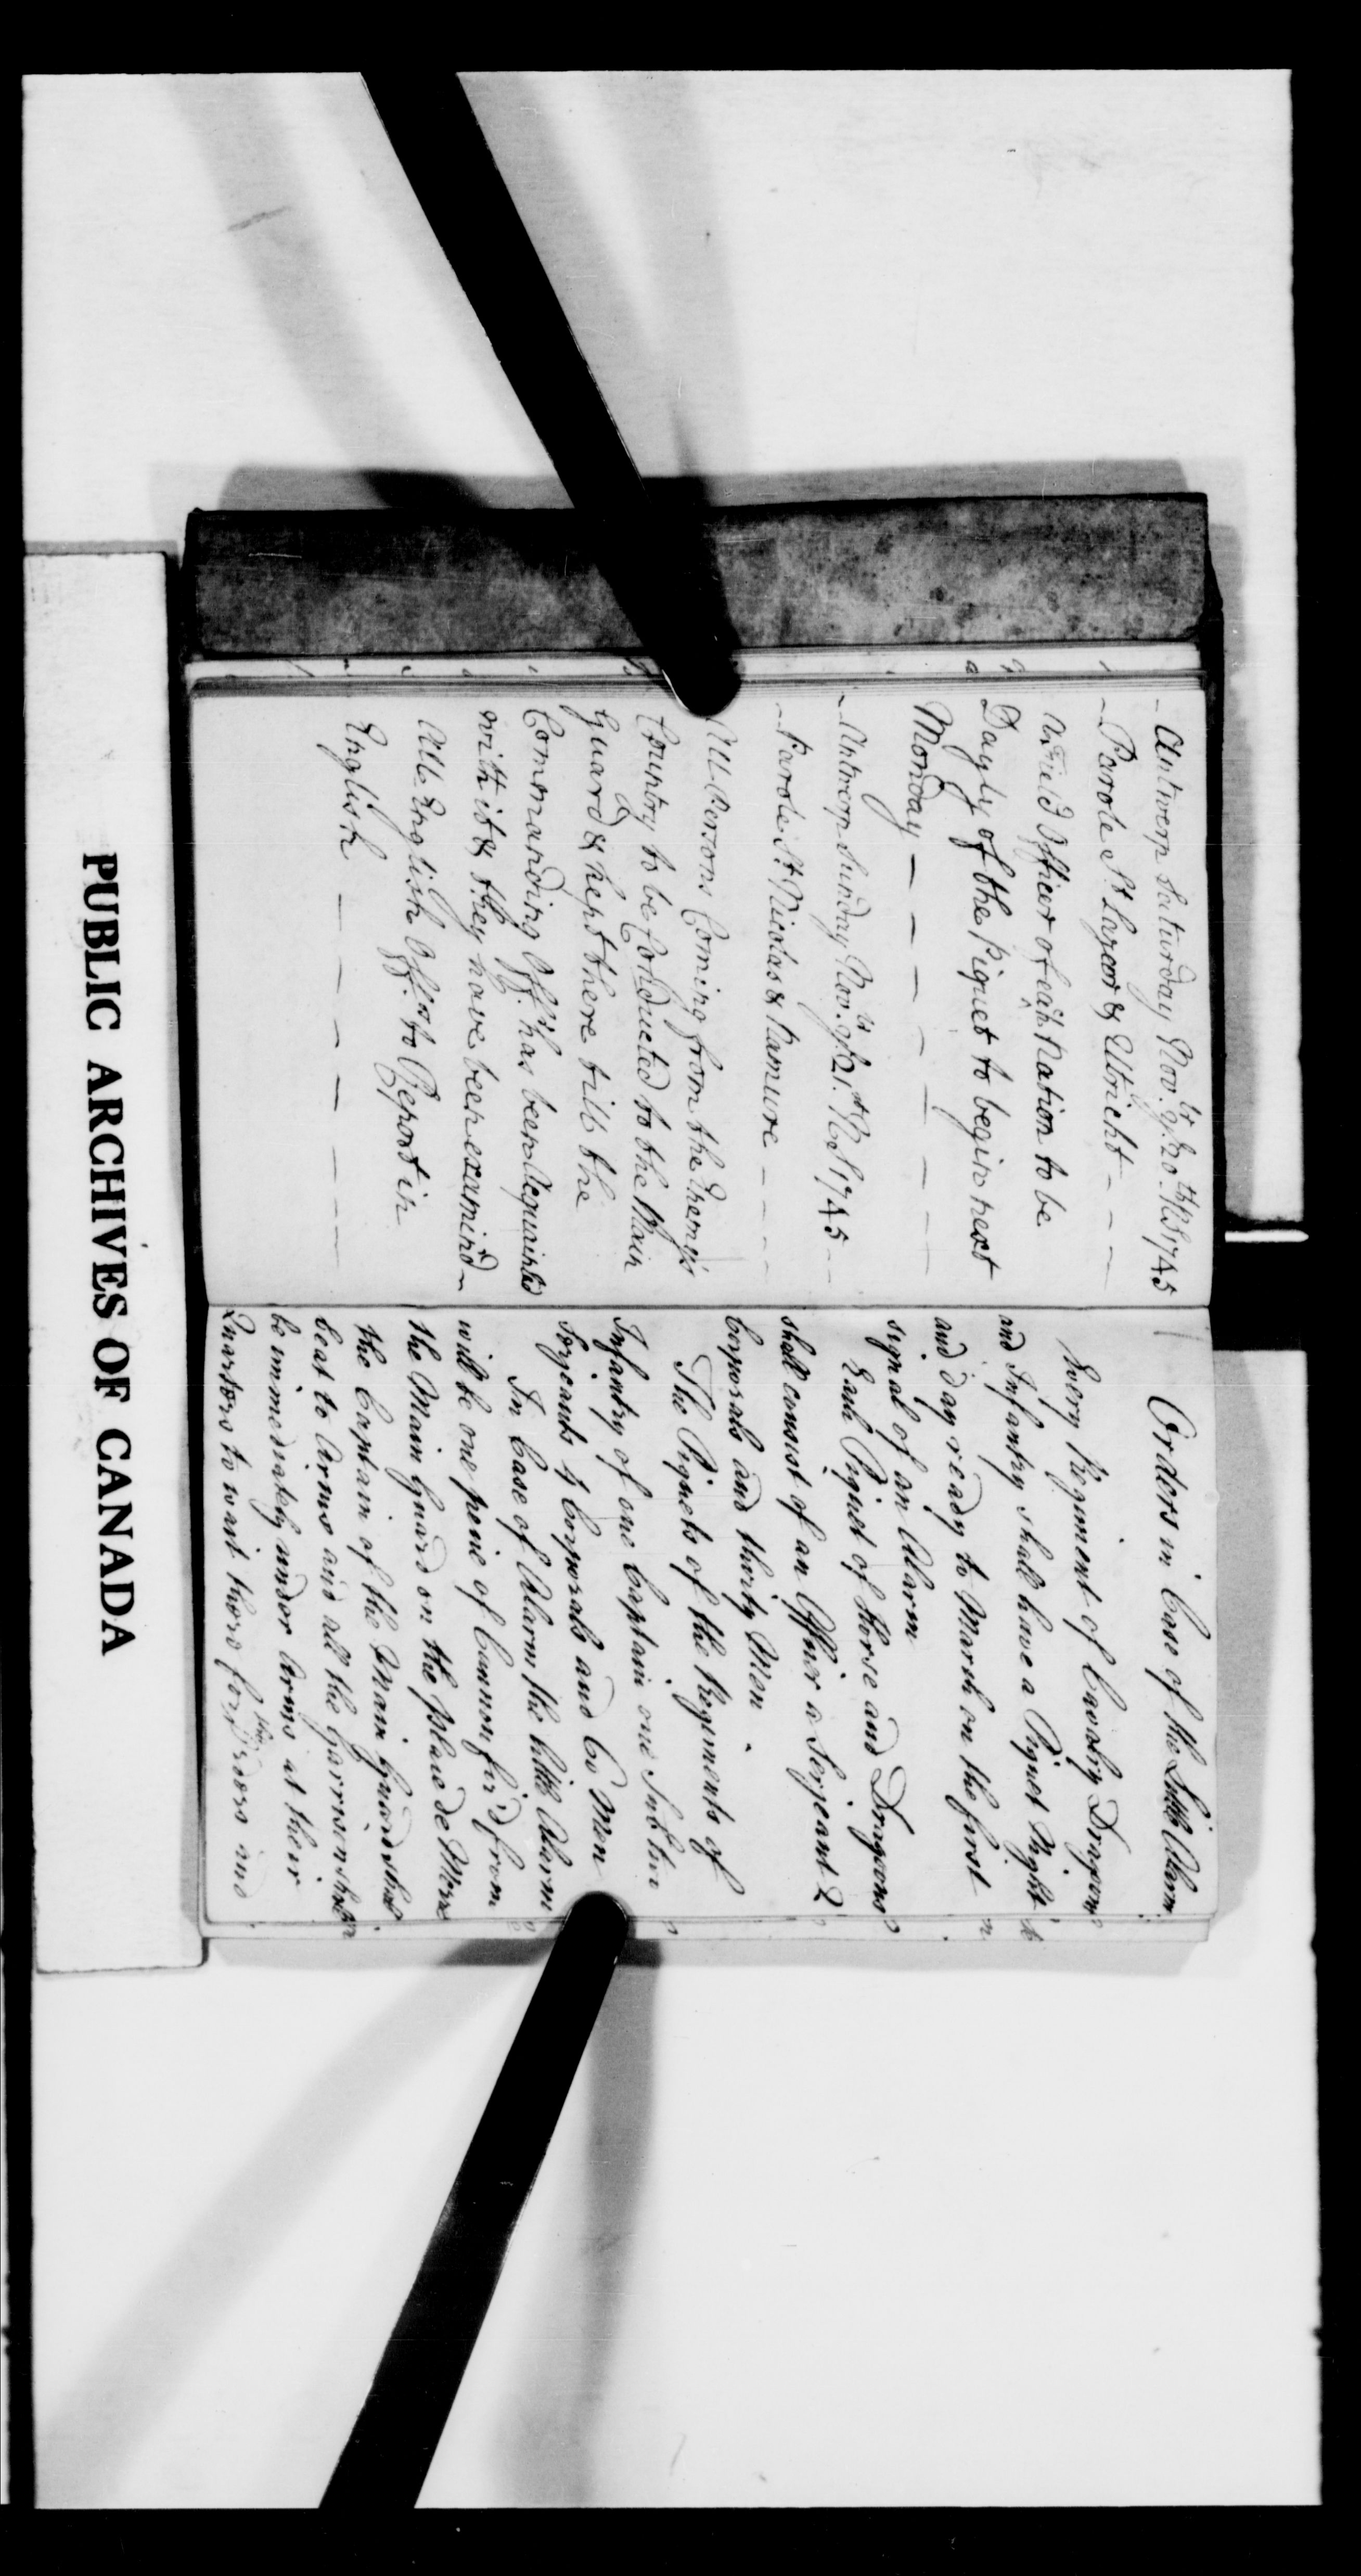 - Antwerp Saturday Nov.br y.e 20.th NS 1745
- Parole St Lazar & Utricht - - -
A Field Officer of each Nation to be
Dayly of the Piquet to begin next
Monday - - - - - - -
- Antwerp Sunday Nov.br y.e 21.st N S 1745 - -
- Parole St Nicolas & Namure - - - -
All Persons Coming from the Enemy's
Country to be Conducted to the Main
Guard & kept there till the
Commanding Offr. has been Acquainted
with it & they have been examin'd -
All English Offrs to Report in
English - - - - - -
Orders in Case of the Little Alarm
Every Regiment of Cavalry Dragoons
and Infantry shall have a Piquet Night
and day ready to March on the first
signal of an Alarm
Each Piquet of Horse and Dragoons
shall consist of an Officer a Serjeant 2
Corporals and thirty Men
The Piquets of the Regiments of
Infantry of one Captain one Sub two
Serjeants 4 Corporals and 60 Men
In Case of Alarm the little Alarm
will be one peice of Cannon fir'd from
the Main Guard on the place de Mere
the Captain of the Main Guard shall
beat to Arms and all the Garrison shall
be immediately under Arms at their
Quarters to wait there for orders and
PUBLIC ARCHIVES OF CANADA